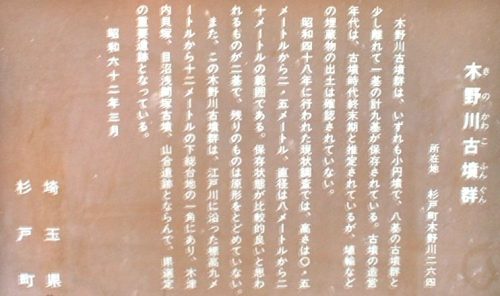 木野川古墳群
きのかわこふんぐん
所在地 杉戸町木野川二六四
木野川古墳群は、いずれも小円墳で、八基の古墳群と
少し離れて一基の計九基が保存されている。古墳の造営
年代は、古墳時代終末期と推定されているが、埴輪など
の埋蔵物の出土は確認されていない。
昭和四十八年に行われた現状調査では、高さは〇・五
メートルから二・五メートル、直径は八メートルから二
十メートルの範囲である。保存状態が比較的良いと思わ
れるものが二基で、残りのものは原形をとどめていない。
また、この木野川古墳群は、江戸川に沿った標高九メ
ートルから十二メートルの下総台地の一角にあり、木津
内貝塚、目沼浅間塚古墳、山合遺跡とならんで、県選定
の重要遺跡となっている。
昭和六十二年三月
埼玉県
杉戸町